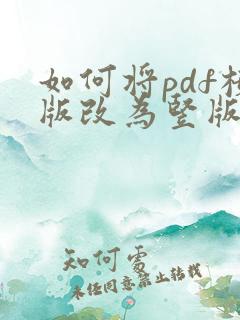 如何将pdf
版改为竖版
知何处
未经同意禁止转载